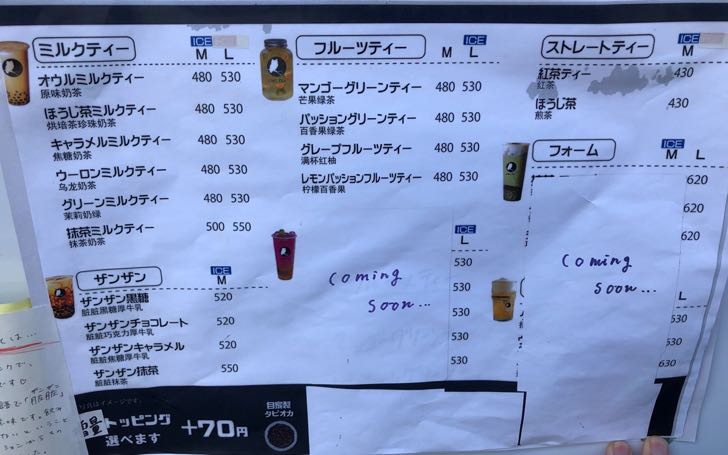 ミルクティー
ICE
M L
オウルミルクティー 480 530
原味奶茶
ほうじ茶ミルクティー 480 530
烘培茶珍珠奶茶
キャラメルミルクティー 480 530
焦糖奶茶
ウーロンミルクティー 480 530
乌龙奶茶
グリーンミルクティー 480 530
茉莉奶绿
抹茶ミルクティー 500 550
抹茶奶茶
ザンザン
ICE
M
ザンザン黒糖 520
脏脏黑糖厚牛乳
ザンザンチョコレート 520
脏脏巧克力厚牛乳
ザンザンキャラメル 520
脏脏焦糖厚牛乳
ザンザン抹茶 550
脏脏抹茶
フルーツティー
ICE
M L
マンゴーグリーンティー 480 530
芒果绿茶
パッショングリーンティー 480 530
百香果绿茶
グレープフルーツティー 480 530
满杯红柚
レモンパッションフルーツティー 480 530
柠檬百香果
ICE
L
530
530
530
530
530
Coming
Soon...
ストレートティー
ICE
M
紅茶ティー 430
红茶
ほうじ茶 430
煎茶
フォーム
ICE
M L
620
620
620
Coming
Soon...
L
530
630
写真はイメージです.
量
トッピング
選べます
+70円
自家製
タピオカ